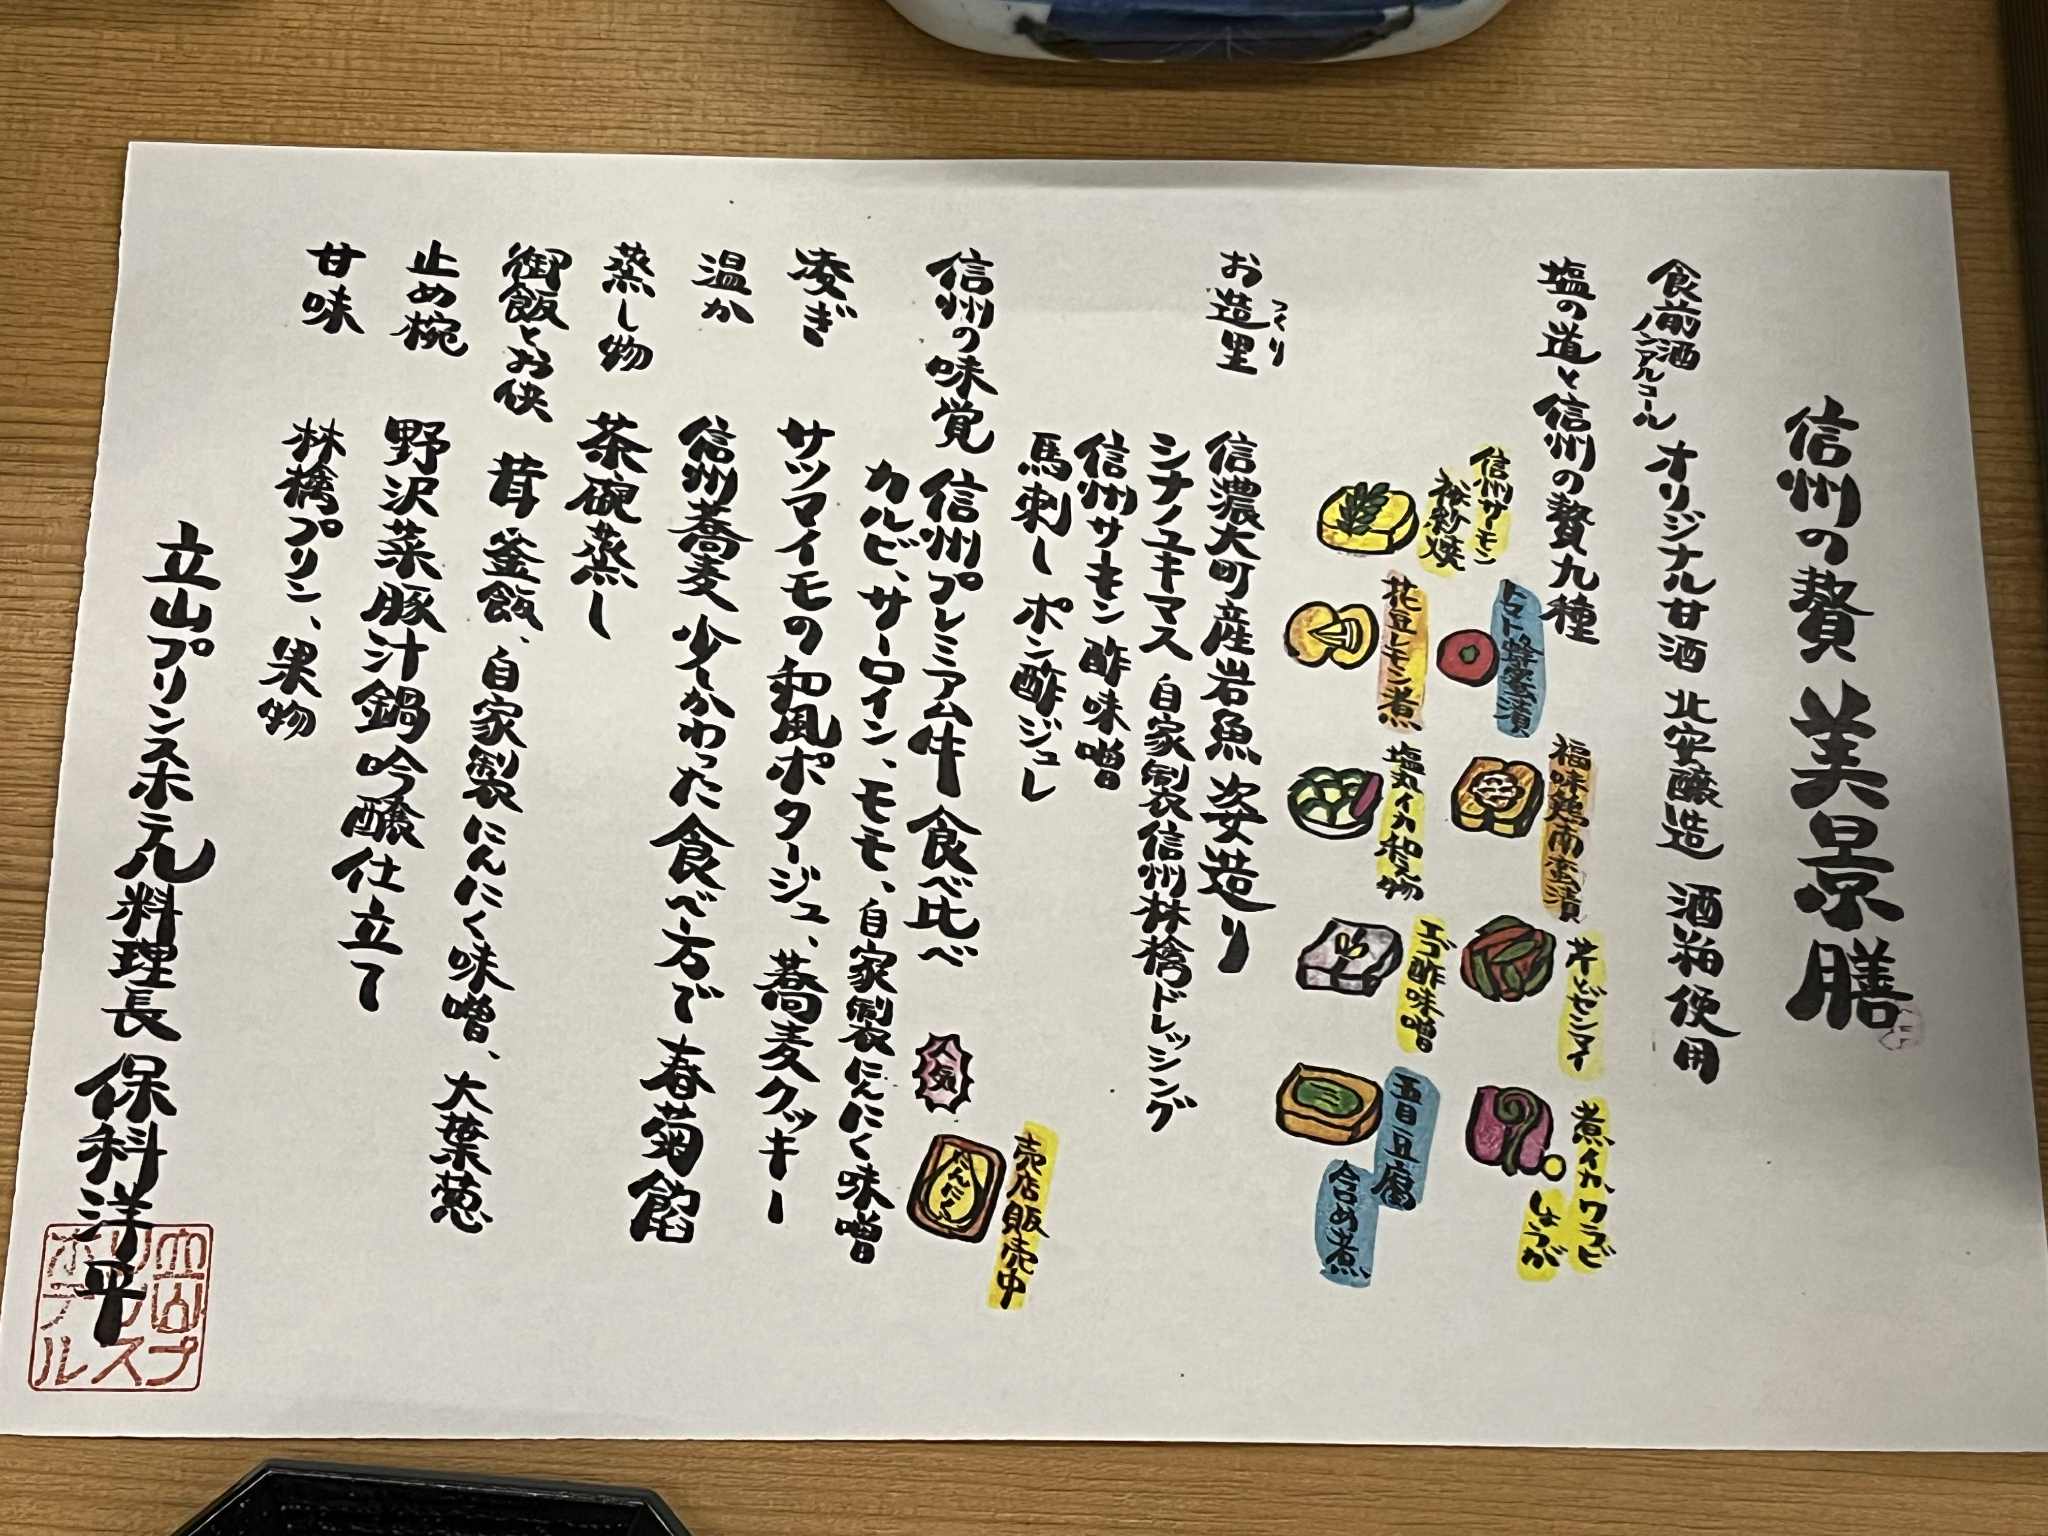 信州の贅 美景膳
食前酒 ノンアルコール オリジナル甘酒 北安醸造 酒粕使用
塩の道と信州の贅九種
信州サーモン
袱紗焼
トマト蜂蜜漬
花豆レモン煮
福味鶏南蛮漬
塩丸イカ和え物
芹とゼンマイ
エゴ酢味噌
煮イカ、ワラビ
しょうが
五目豆腐
含め煮
お造里 つくり 信濃大町産岩魚 姿造り
シナノユキマス 自家製信州林檎ドレッシング
信州サーモン 酢味噌
馬刺し ポン酢ジュレ
信州の味覚 信州プレミアム牛 食べ比べ
人気
カルビ、サーロイン、モモ、自家製にんにく味噌
にんにく
売店販売中
凌ぎ サツマイモの和風ポタージュ、蕎麦クッキー
温か 信州蕎麦 少しかわった食べ方で 春菊餡
蒸し物 茶碗蒸し
御飯とお供 茸釜飯、自家製にんにく味噌、大葉葱
止め椀 野沢菜豚汁鍋 吟醸仕立て
甘味 林檎プリン、果物
立山プリンスホテル 料理長 保科洋平
立山プ
リンス
ホテル